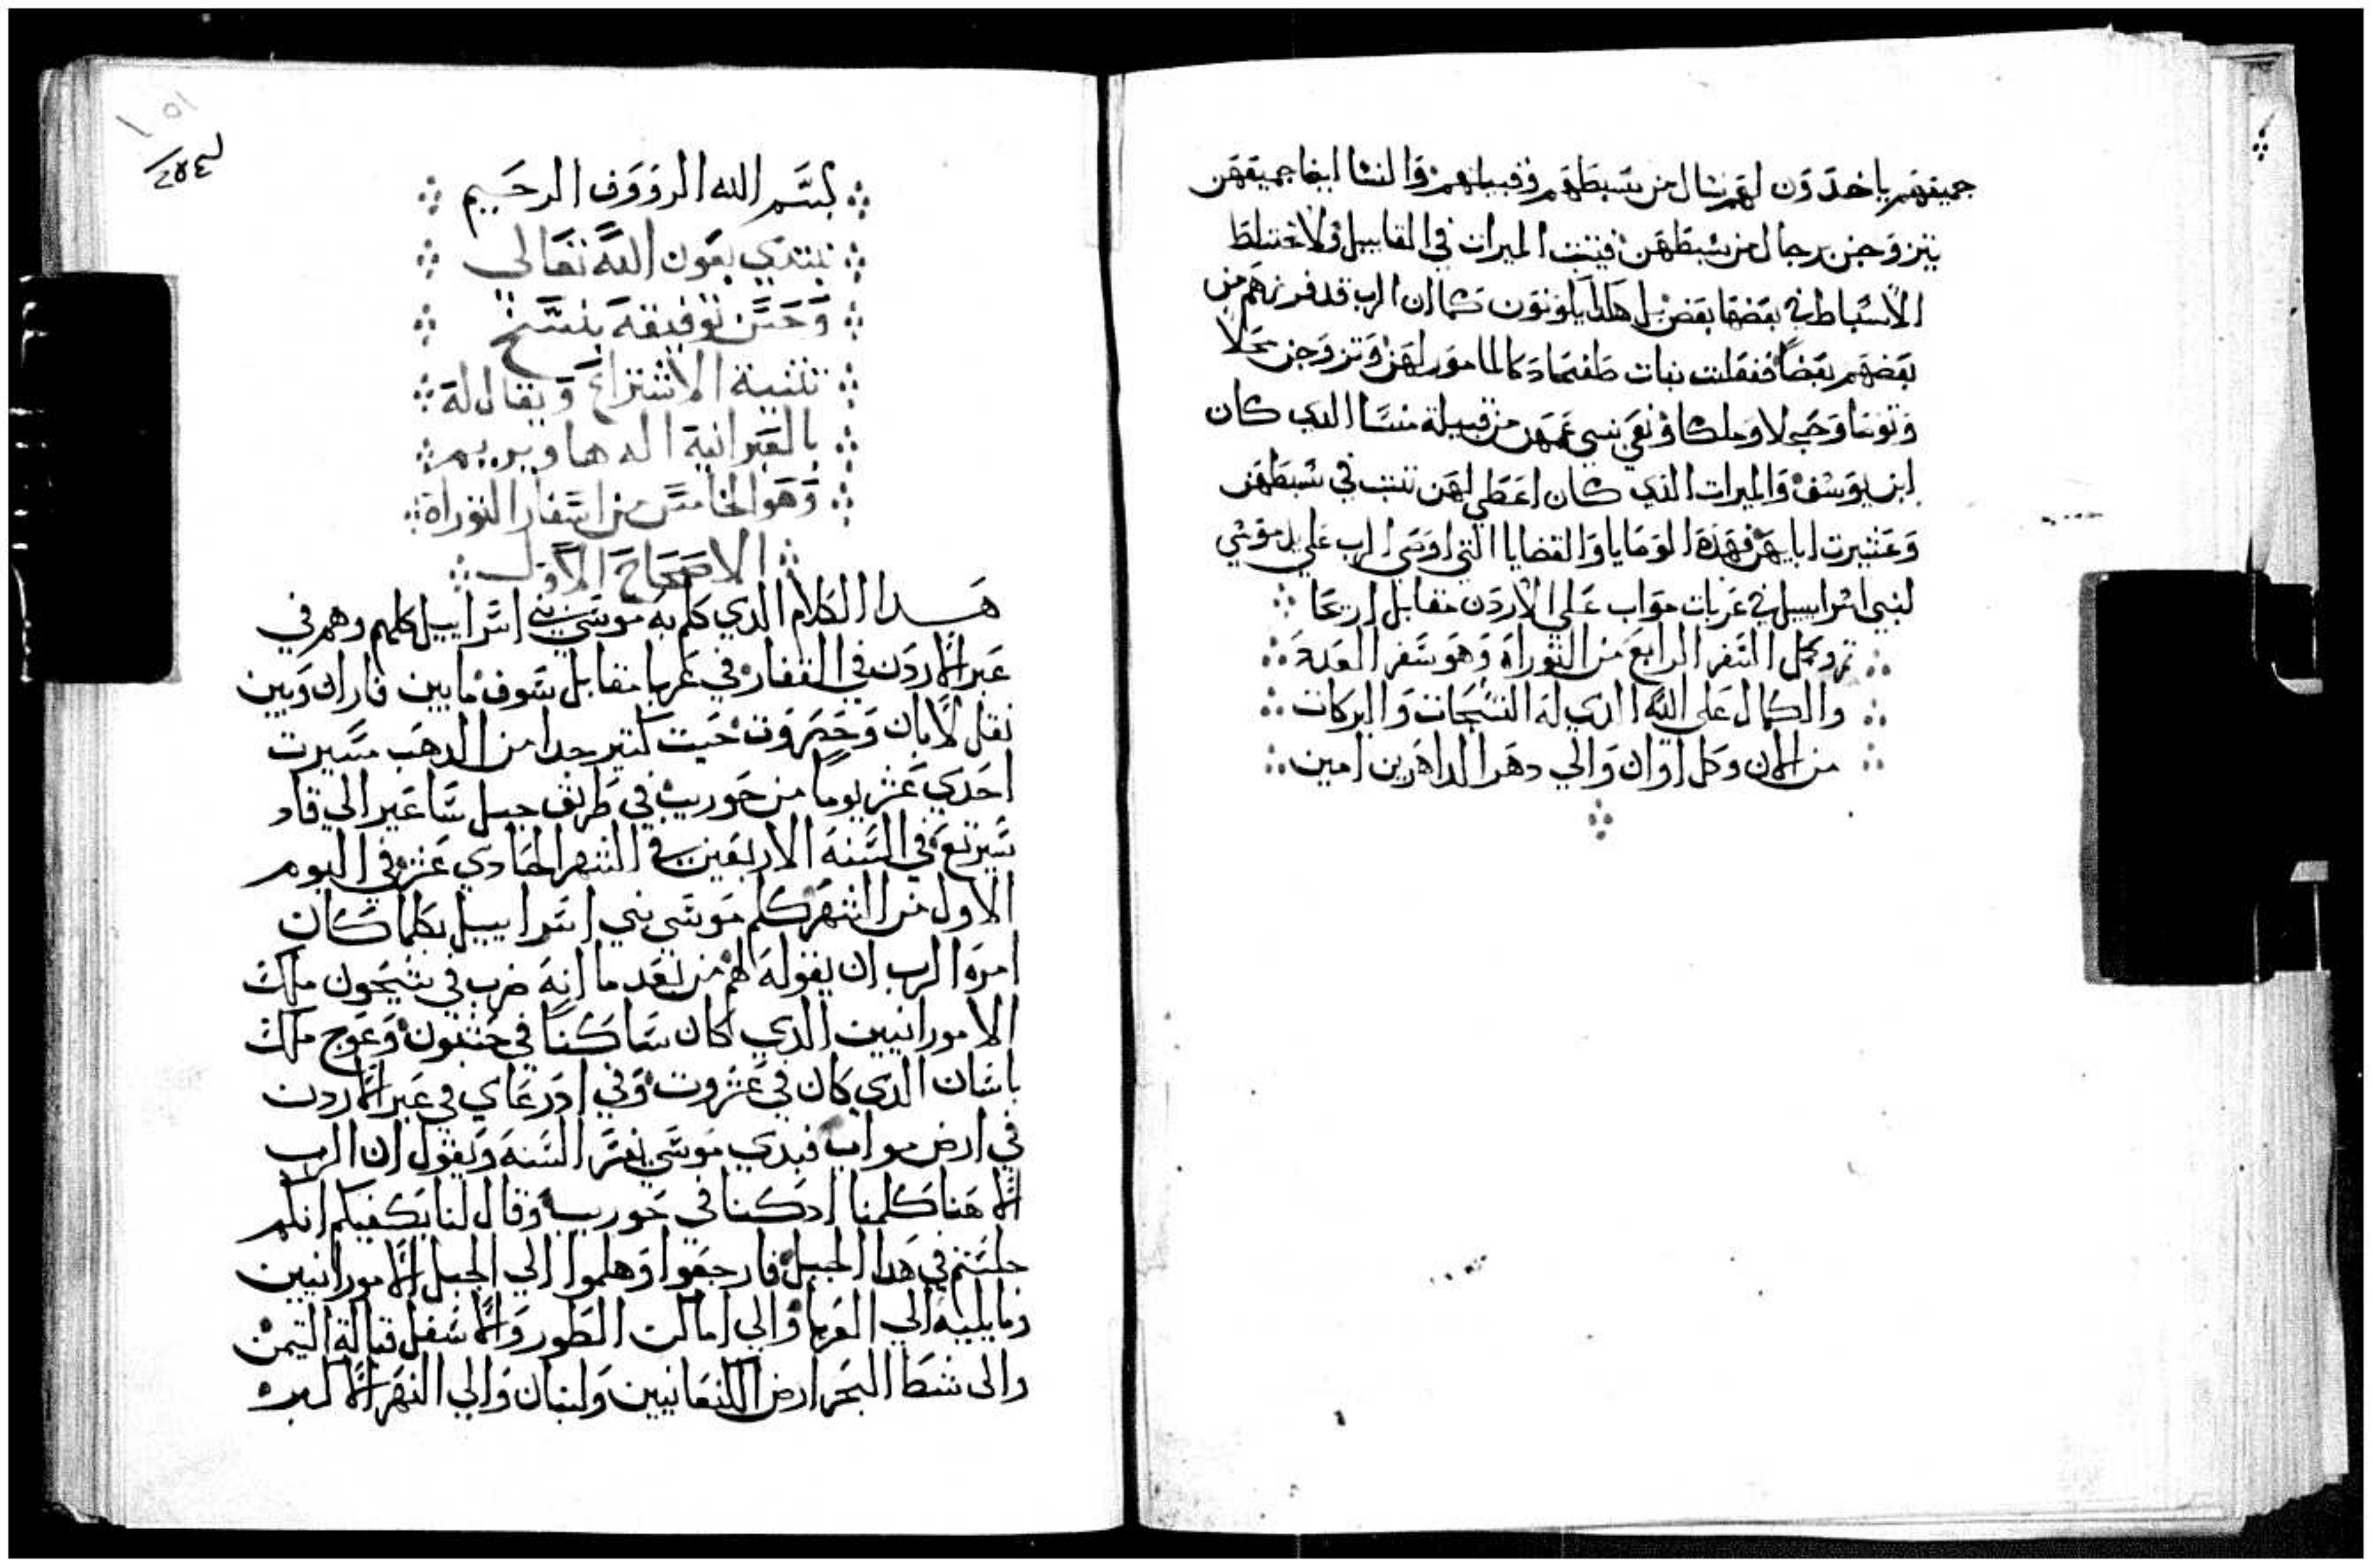 جميعهم ياخدون لهم نسا من سبطهم وقبيلتهم والنسا ايضا جميعهن
يتزوجن برجال من سبطهن فيتبت الميرات في القبايل ولا تختلط
الاسباط في بعضها بعض بل هكدا يكونون كما ان الرب قد فرزهم من
بعضهم بعضا ففعلت بنات صلفحاد كالمامور لهن وتزوجن محلا
وتوسا وحجلا وملكا ونعي بني عمهن من قبيلة منسا الدي كان
ابن يوسف والميرات الذي كان اعطي لهن تبت في سبطهن
وعشيرت اباهن فهذه الوصايا والقضايا التي اوصي الرب علي يد موسي
لبني اسراييل في عربات مواب علي الاردن مقابل اريحا
تم وكمل السفر الرابع من التوراة وهو سفر العدة
والكمال علي الله الدي له التسبحات والبركات
من الان وكل اوان والي دهر الداهرين امين
بسم الله الرووف الرحيم
نبتدي بعون الله تعالي
وحسن توفيقه بنسخ
تثنية الاشتراع ويقال له
بالعبرانية اله هاويريم
وهو الخامس من اسفار التوراة
الاصحاح الاول
هدا الكلام الدي كلم به موسي بني اسراييل كلهم وهم في
عبر الاردن في القفار في عربا مقابل سوف ما بين فاران وبين
تفل لابان وحصروت حيت كتير جدا من الدهب مسيرت
احدي عشر يوما من حوريب في طريق جبل ساعير الي قاد
سبرنع في السنه الاربعين في الشهر الحادي عشر في اليوم
الاول من الشهر كلم موسي بني اسراييل بكلما كان
امره الرب ان يقوله لهم من بعد ما انه ضرب في شيحون ملك
الامورانيين الدي كان ساكنا في حشبون وعوج ملك
باشان الدي كان في عشروت وفي ادرعاي في عبر الاردن
في ارض مواب فبدي موسي يفسر السنه ويقول ان الرب
الاهنا كلمنا اد كنا في حوريب وقال لنا يكفيكم انكم
جلستم في هدا الجبل فارجعوا وهلموا الي الجبل الامورانيين
وما يليه الي العربا والي اماكن الطور والاسفل قبالة التيمن
والى شط البحر ارض الكنعانيين ولبنان والي النهر الاكبر